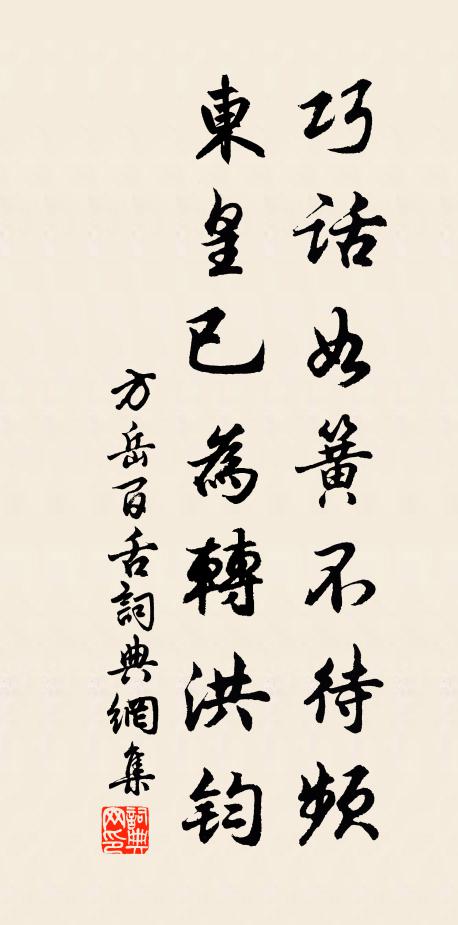 巧話如簧不待頻
東皇已為轉洪鈞
方岳百舌詞典網集
詞典網印